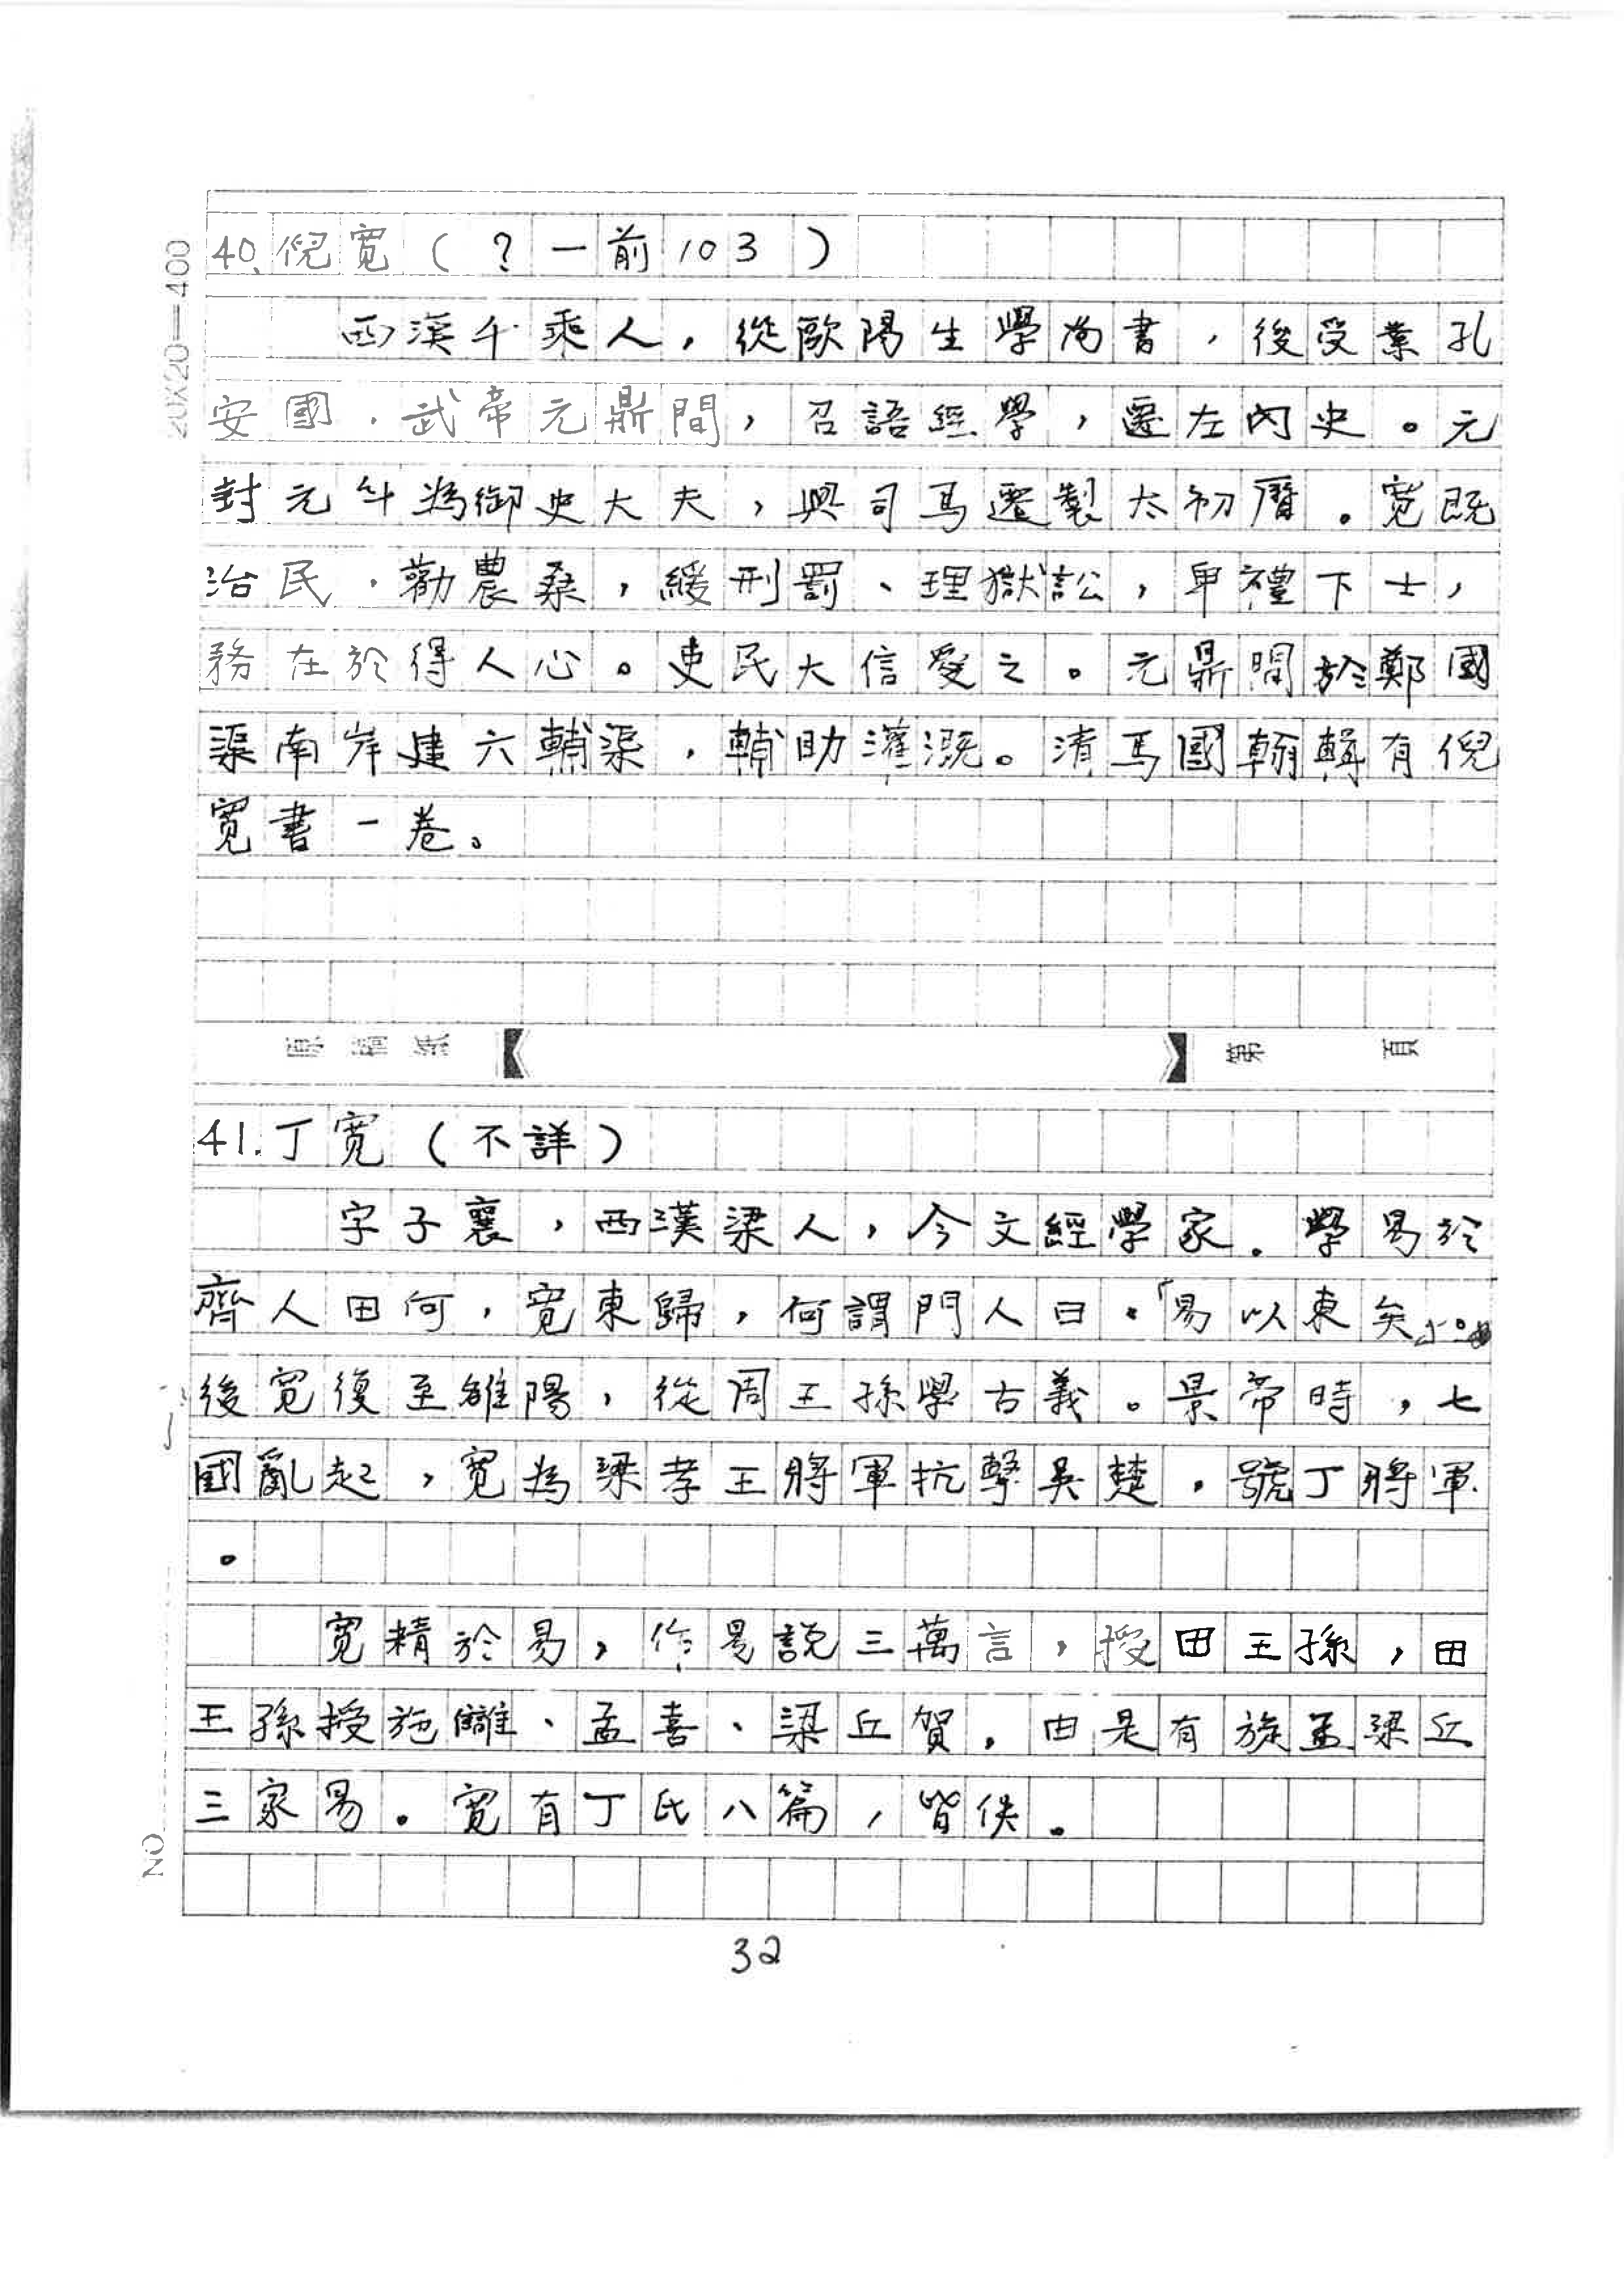 20X20=400
40.倪寬(?—前103)
西漢千乘人,從歐陽生學尚書,後受業孔
安國,武帝元鼎間,召語經學,遷左內史。元
封元年為御史大夫,與司馬遷製太初曆。寬既
治民,勸農桑,緩刑罰、理獄訟,卑禮下士,
務在於得人心。吏民大信愛之。元鼎間於鄭國
渠南岸建六輔渠,輔助灌溉。清馬國翰輯有倪
寬書一卷。
原稿紙 第 頁
41.丁寬(不詳)
字子襄,西漢梁人,今文經學家。學易於
齊人田何,寬東歸,何謂門人曰,「易以東矣」。
後寬復至雒陽,從周王孫學古義。景帝時,七
國亂起,寬為梁孝王將軍抗擊吳楚,號丁將軍
。
寬精於易,作易說三萬言,授田王孫,田
王孫授施讎、孟喜、梁丘賀,由是有施孟梁丘
三家易。寬有丁氏八篇,皆佚。
NO
32